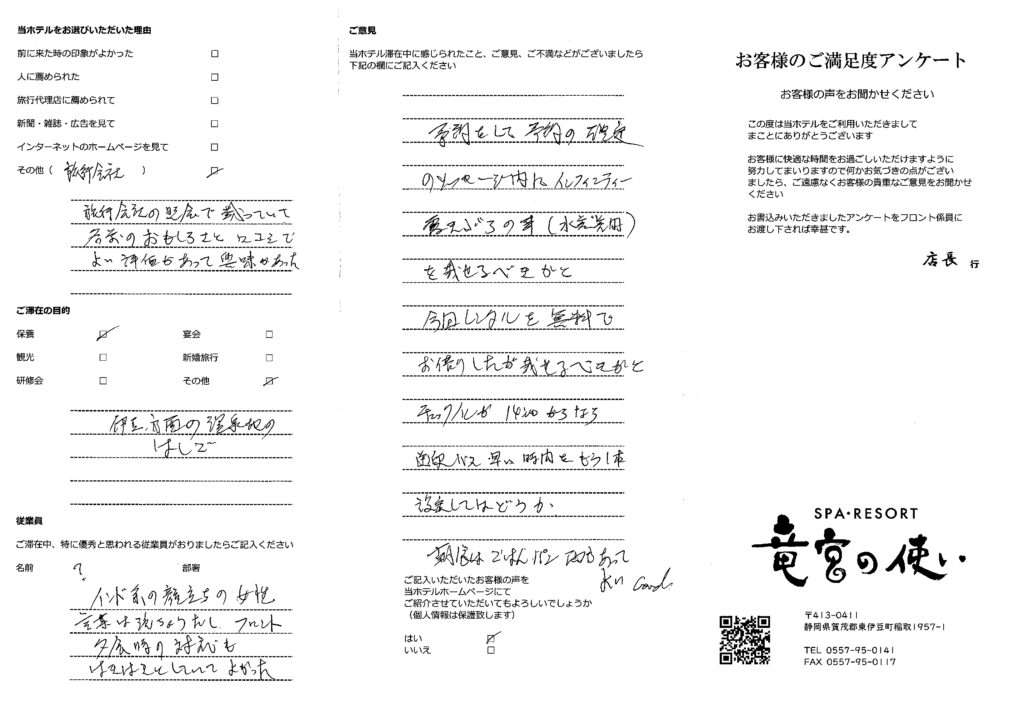 当ホテルをお選びいただいた理由
前に来た時の印象がよかった □
人に薦められた □
旅行代理店に薦められて □
新聞・雑誌・広告を見て □
インターネットのホームページを見て □
その他 ( 旅行会社 ) ☑
旅行会社の照会で載っていて
名前のおもしろさと口コミで
よい評価があって興味があった
ご滞在の目的
保養 ☑ 宴会 □
観光 □ 新婚旅行 □
研修会 □ その他 ☑
伊豆方面の温泉地の
はしご
従業員
ご滞在中、特に優秀と思われる従業員がおりましたらご記入ください
名前 ? 部署
インド系の顔立ちの女性
言葉は流ちょうだし フロント
夕食時の対応も
はきはきとしていてよかった
ご意見
当ホテル滞在中に感じられたこと、ご意見、ご不満などがございましたら
下記の欄にご記入ください
予約をして予約の確定
のメッセージ内にインフィニティー
露天ぶろの事(水着着用)
を載せるべきかと
今回レンタルを無料で
お借りしたが載せるべきかと
チェックインが14:00からなら
送迎バス早い時間をもう1本
設定してはどうか
朝食はごはん パン 両方あって
よい Good
ご記入いただいたお客様の声を
当ホテルホームページにて
ご紹介させていただいてもよろしいでしょうか
(個人情報は保護致します)
はい ☑
いいえ □
お客様のご満足度アンケート
お客様の声をお聞かせください
この度は当ホテルをご利用いただきまして
まことにありがとうございます
お客様に快適な時間をお過ごしいただけますように
努力してまいりますので何かお気づきの点がござい
ましたら、ご遠慮なくお客様の貴重なご意見をお聞かせ
ください
お書込みいただきましたアンケートをフロント係員に
お渡し下されば幸甚です。
店長 行
SPA・RESORT
竜宮の使い
〒413-0411
静岡県賀茂郡東伊豆町稲取1957-1
TEL 0557-95-0141
FAX 0557-95-0117